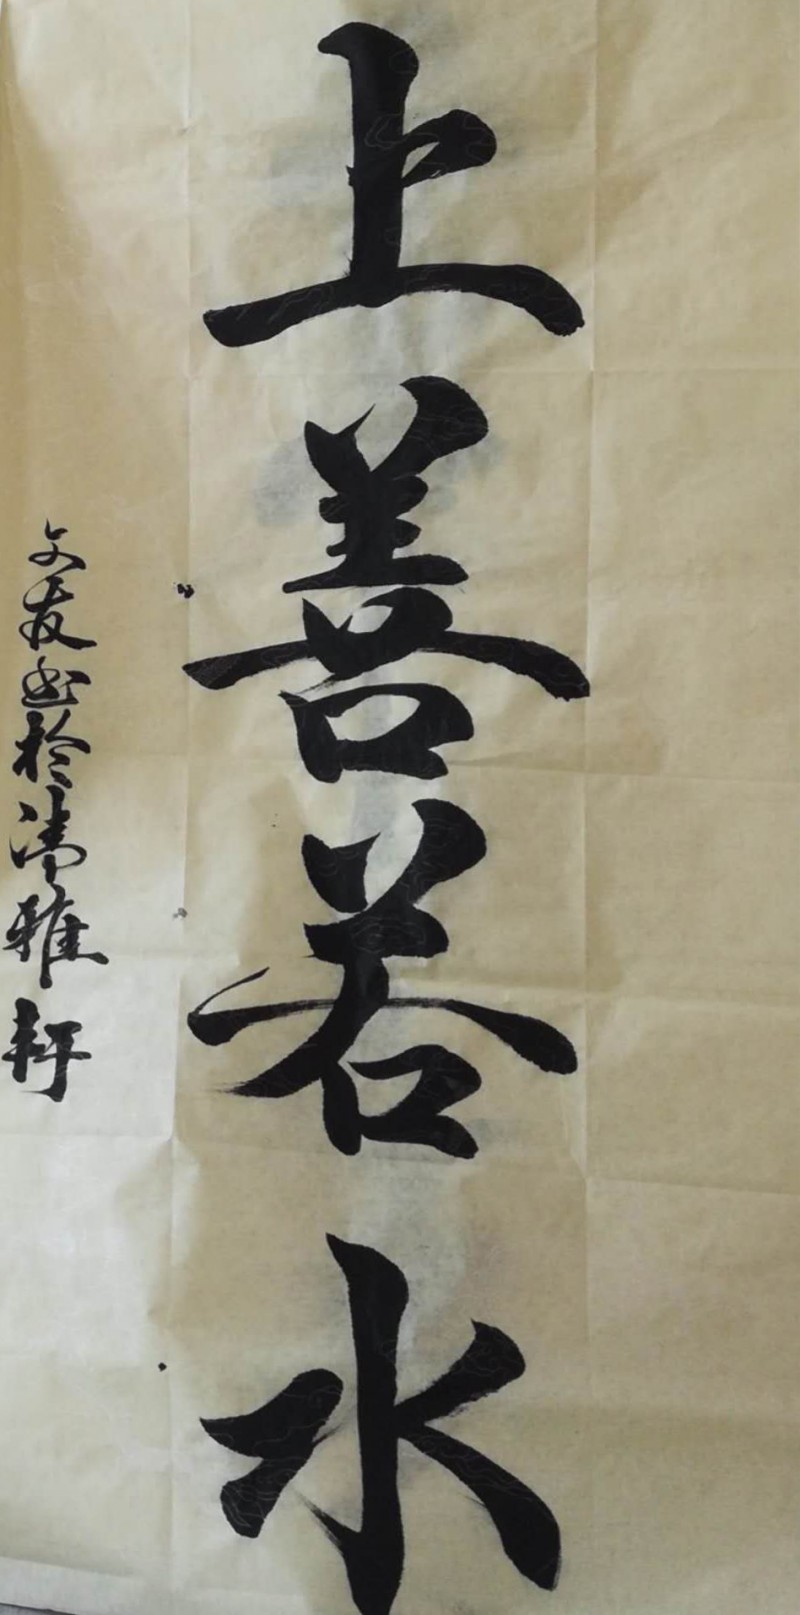 上善若水
文友书於清雅轩